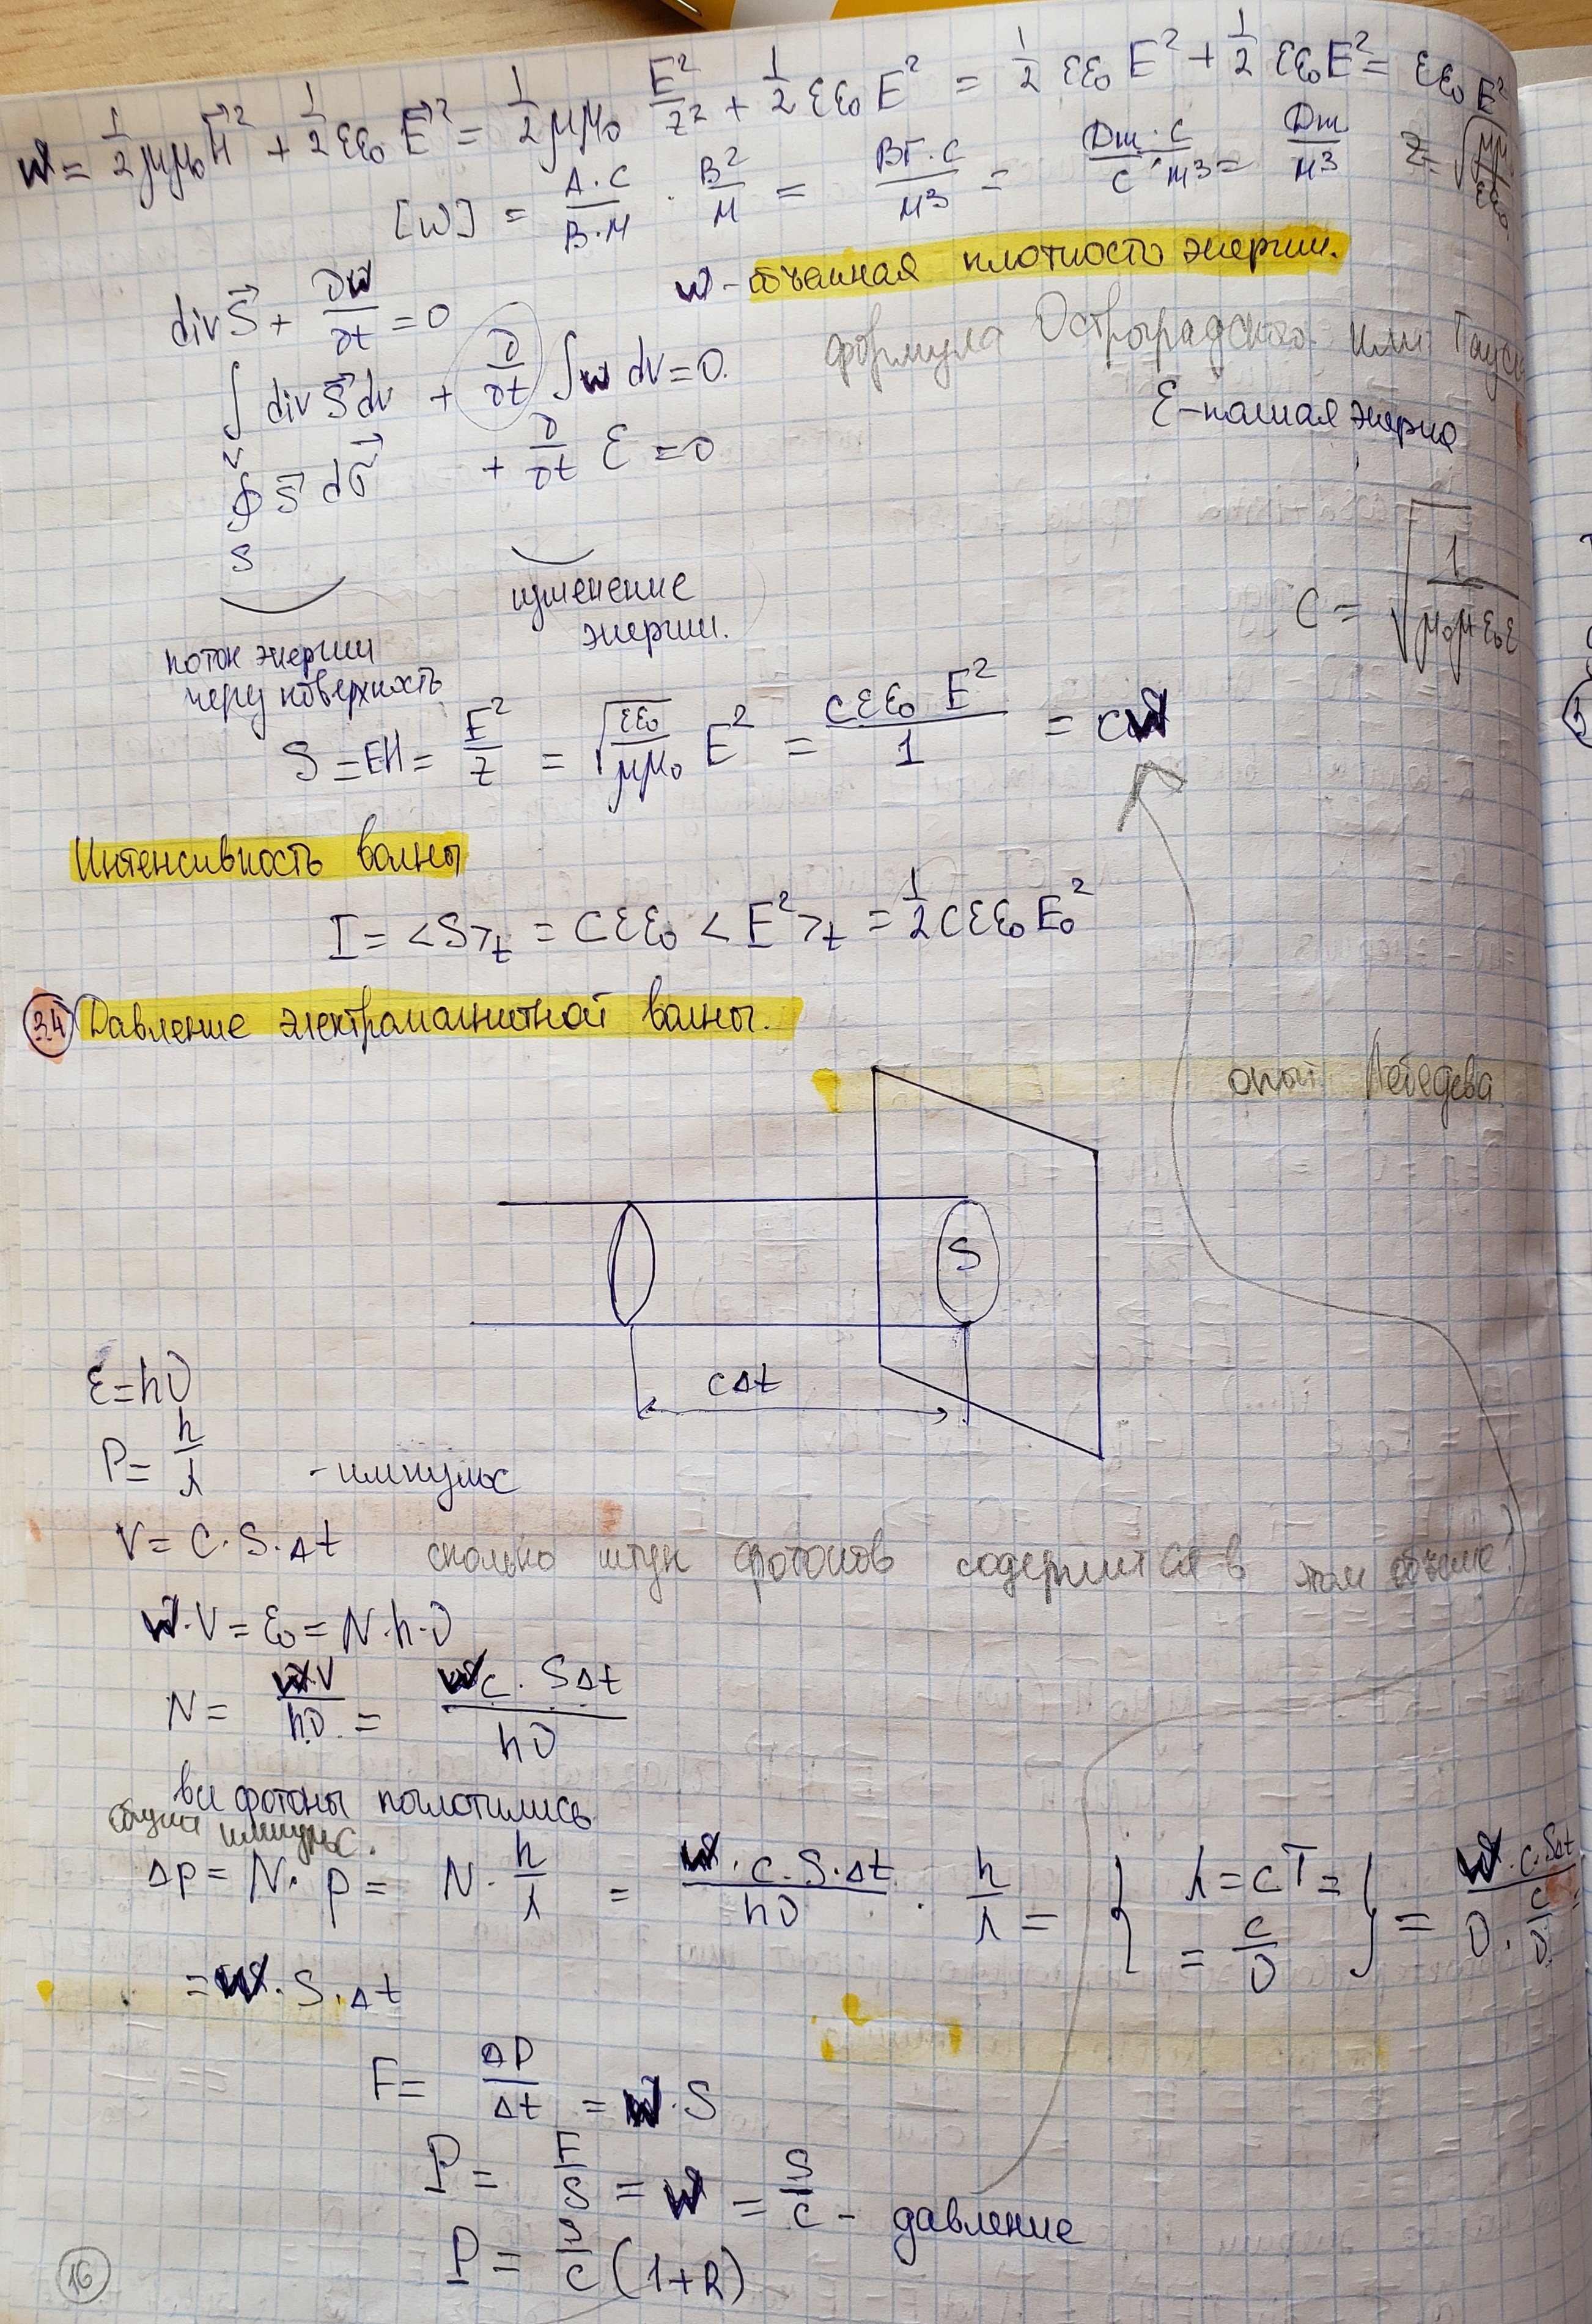 w = 1/2 μμ₀ H⃗² + 1/2 εε₀ E⃗² = 1/2 μμ₀ E²/z² + 1/2 εε₀ E² = 1/2 εε₀ E² + 1/2 εε₀ E² = εε₀ E²
[w] = А·С/В·М · В²/М = ВТ·С/М³ = Дж·С/С·м³ = Дж/м³ z = √(μμ₀/εε₀)
w - объемная плотность энергии.
div S⃗ + ∂w/∂t = 0
формула Остроградского или Гаусс
∫ div S⃗ dv + ∂/∂t ∫ w dv = 0.
V
ℰ - полная энергия
∮ S⃗ dσ⃗ + ∂/∂t ℰ = 0
S
изменение
энергии.
c = √(1/μ₀μ ε₀ε)
поток энергии
через поверхность
S = EH = E²/z = √(εε₀/μμ₀) E² = cεε₀ E²/1 = cw
Интенсивность волны
I = <S>t = cεε₀ <E²>t = 1/2 cεε₀E₀²
34 Давление электромагнитной волны.
опыт Лебедева
S
cΔt
ε = hν
P = h/λ - импульс
V = c·S·Δt сколько штук фотонов содержится в этом объеме?
w·V = ε₀ = N·h·ν
N = w·V/hν = wc·SΔt/hν
все фотоны поглотились
общий импульс.
Δp = N·p = N·h/λ = w·c·S·Δt/hν · h/λ = { λ = cT = = c/ν } = w·c·SΔt/ν·c/ν =
= w·S·Δt
F = ΔP/Δt = w·S
P = F/S = w = S/c - давление
P = S/c (1+R)
16